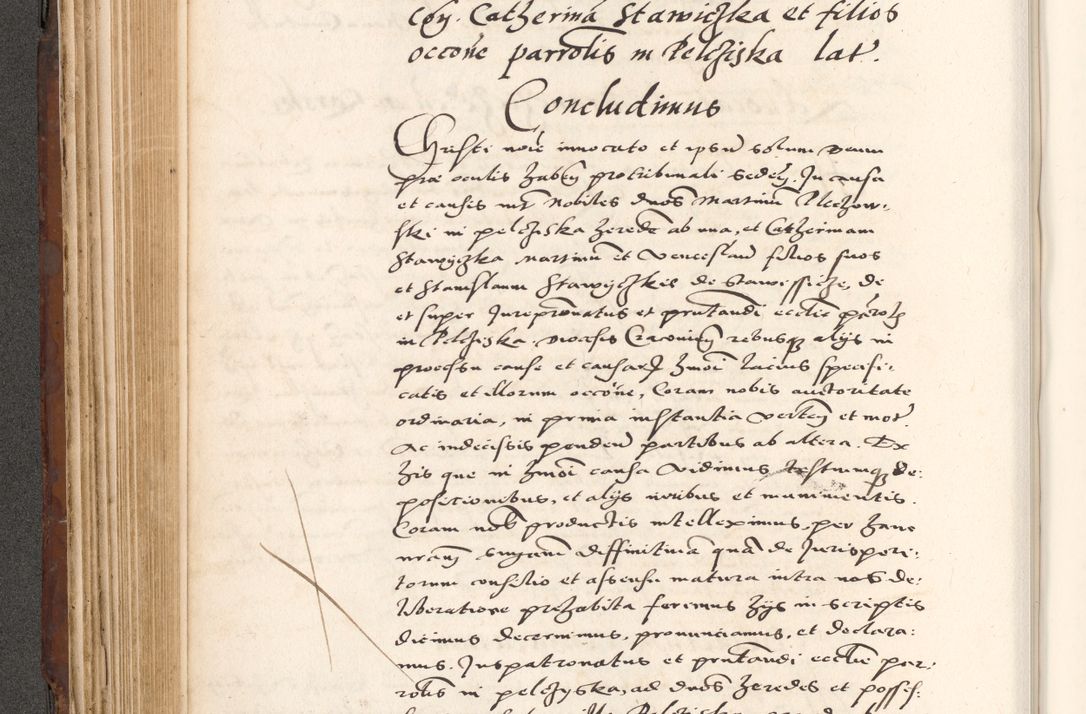 Coñ. Catherinã Stawiczka et filios
occõne parrõlis in Pelczijska lat͛.
Concludimus
Christi nõie innocato et ipsũ solum Deum
prae oculis habeñ protribunali sedeñ. In causa
et causis intr̃ Nobiles dnõs Martinũ Pleczow-
ski in pelczijska heredẽ ab una, et Catherinam
Stawijczka Martinũ et Venceslaũ filios suos
et Stanislaum Stawijczkij de Stawissicze, de
et super Jurepatronatus et prñtandi ecclie
in Pelczijska, diocesis Cracovieñ rebusq alijs in
processu cause et causarũ hmõi lacius specifi-
catis et illorum occõne, Coram nobis auctoritate
ordinaria, in prima instantia verteñ et mot͛
Ac indecissis pendeñ partibus ab altera. Ex
his que in hmõi causa vidimus testiumq de:
positionibus, et alijs iuribus et munimentis
Coram nob productis intelleximus, per hanc
nrãm sñgiam diffinitiuã quã de Jurisperi-
torum consilio et assensu matura intra nos de:
liberatione prehabita ferimus hijs in scriptis
dicimus decernimus, pronunciamus, et declara:
mus. Juspatronatus et prñtandi ecclie par-
rõlis in pelczyska, ad dnõs heredes et posses-